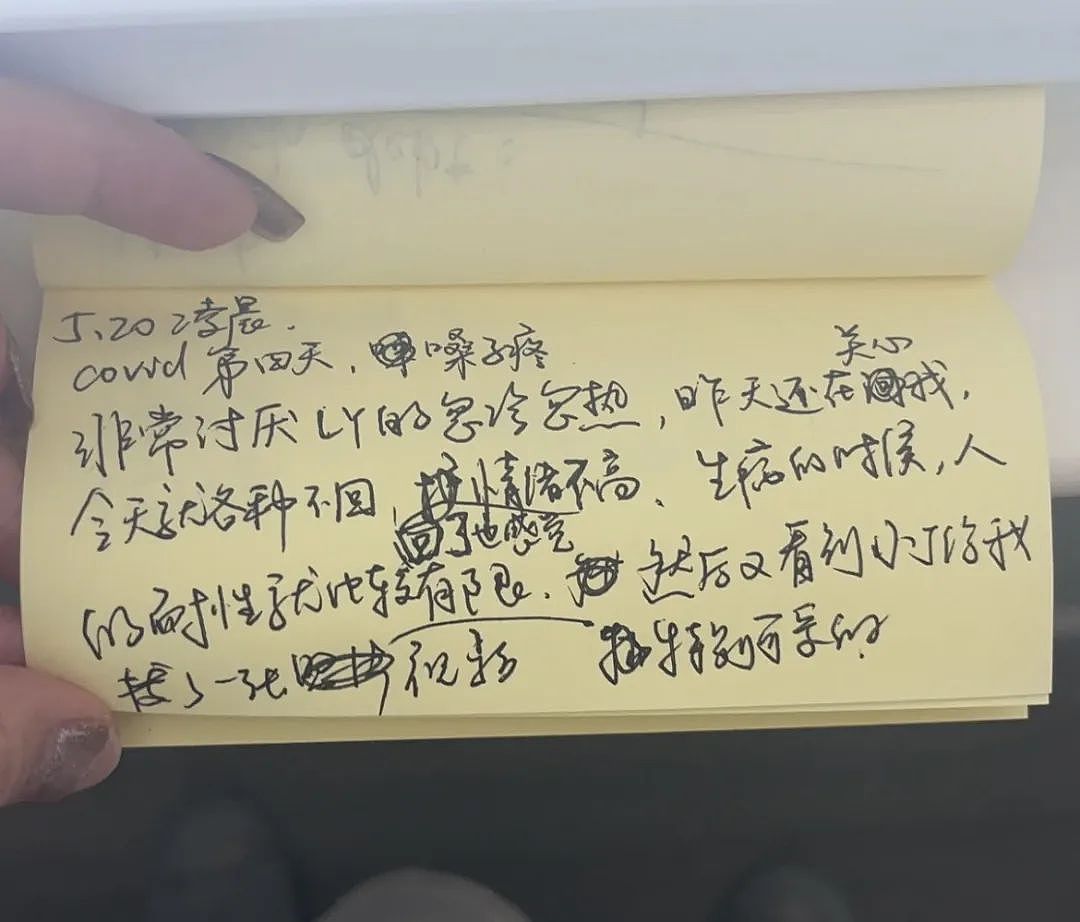 5.20 凌晨.
covid 第四天, 嗓子疼
非常讨厌 LY 的忽冷忽热, 昨天还在关心我,
今天就各种不回, 回了也感觉情绪不高、生病的时候, 人
的耐性就比较有限. 然后又看到小J给我
一张 特别可爱的